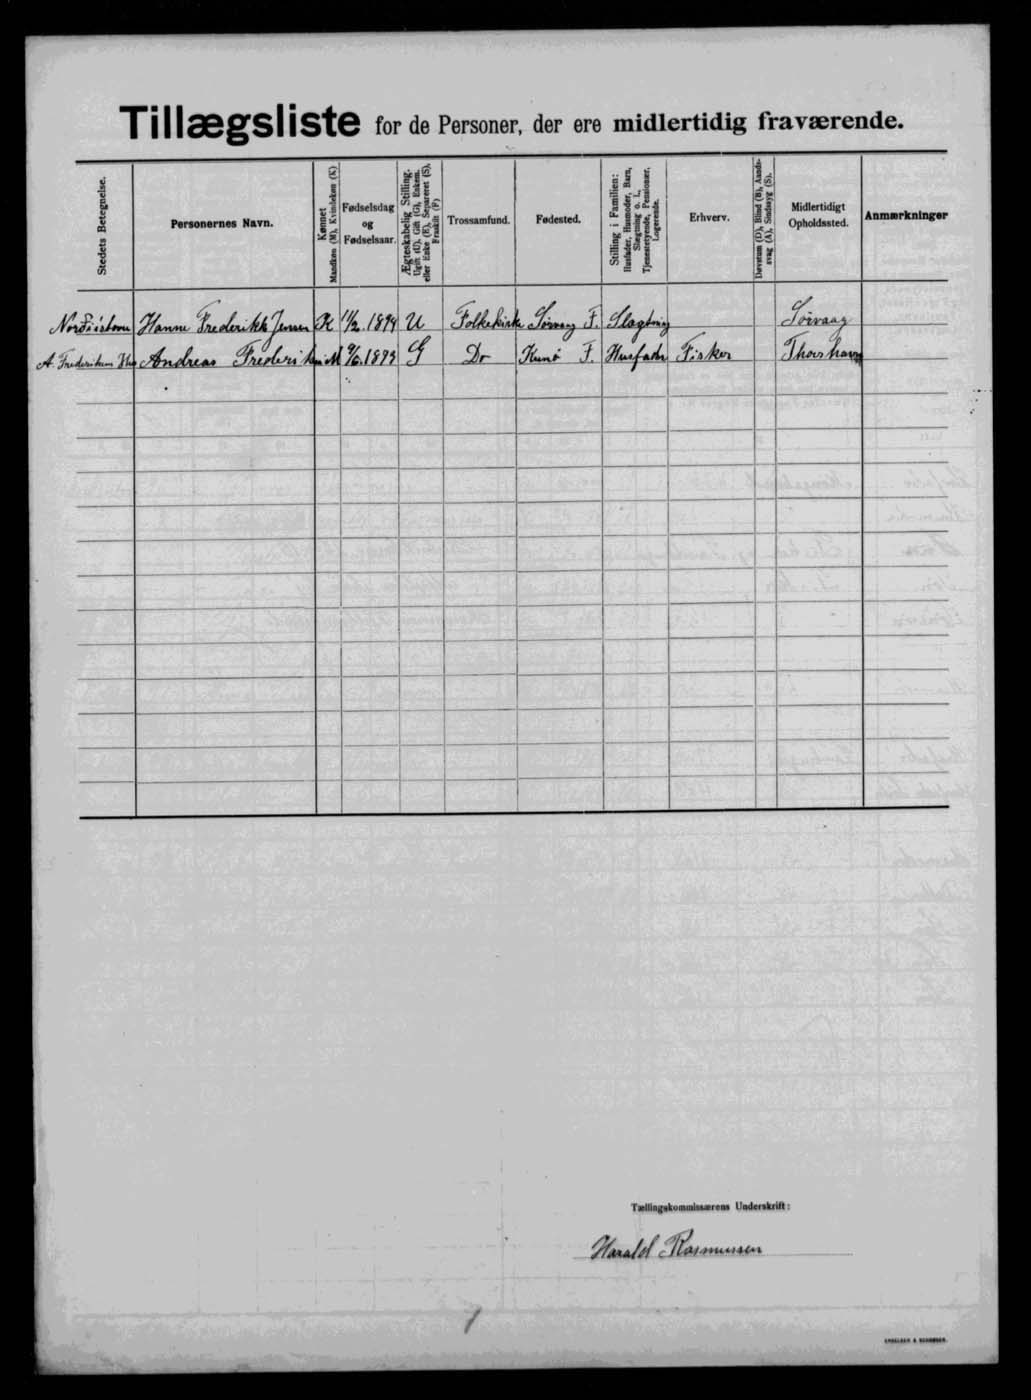 Tillægsliste for de Personer, der ere midlertidig fraværende.
Stedets Betegnelse.
Personernes Navn.
Kønnet
Mandkøn (M), Kvindekøn (K)
Fødselsdag
og
Fødselsaar.
Ægteskabelig Stilling.
Ugift (U), Gift (G), Enkem.
eller Enke (E), Separeret (S),
Fraskilt (F)
Trossamfund.
Fødested.
Stilling i Familien:
Husfader, Husmoder, Barn,
Slægtning o. l.,
Tjenestetyende, Pensionær,
Logerende.
Erhverv.
Døvstum (D), Blind (B), Aands-
svag (A), Sindssyg (S).
Midlertidigt
Opholdssted.
Anmærkninger
Hanne Frederikke Jensen K 11/2 1894 U Folkekirke Sørvaag F. Slægtning Sørvaag
A. Frederiksens Hus Andreas Frederiksen M 1893 G Do Kunø F. Husfader Fisker Thorshavn
Tællingskommissærens Underskrift:
Harald Rasmussen